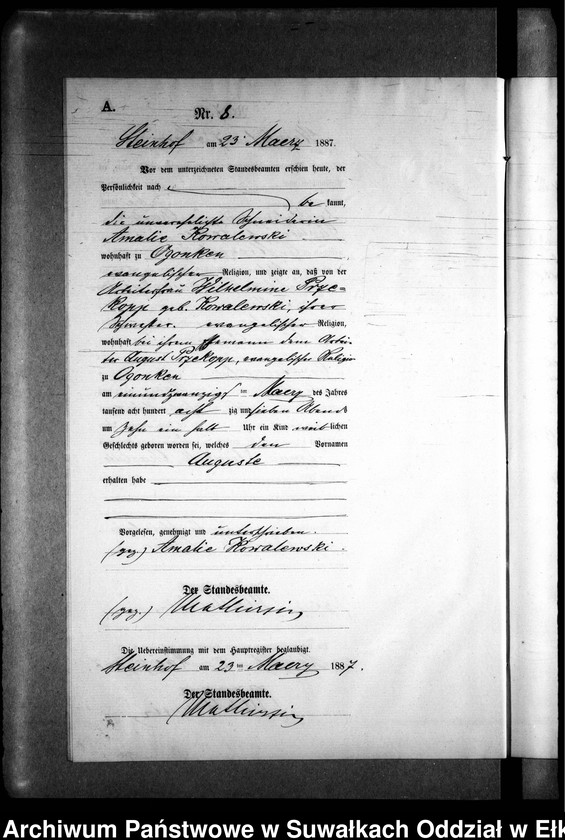 A.
Nr. 8.
Steinhof am 23 Maerz 1887.
Vor dem unterzeichneten Standesbeamten erschien heute, der
Persönlichkeit nach
be kannt,
die unverehelichte Schneiderin
Amalie Kowalewski
wohnhaft zu Ogonken
evangelischer Religion, und zeigte an, daß von der
Arbeiterfrau Wilhelmine Prze-
kopp geb. Kowalewski, ihrer
Schwester evangelischer Religion,
wohnhaft bei ihrem Ehemann dem Arbei-
ter August Przekopp, evangelischer Religion
zu Ogonken
am einundzwanzigs ten Maerz des Jahres
tausend acht hundert acht zig und sieben Abends
um zehn ein halb Uhr ein Kind weib lichen
Geschlechts geboren worden sei, welches den Vornamen
Auguste
erhalten habe
Vorgelesen, genehmigt und unterschrieben.
(gez.) Amalie Kowalewski.
Der Standesbeamte.
(gez.)
Die Uebereinstimmung mit dem Hauptregister beglaubigt.
Steinhof am 23 ten Maerz 1887.
Der Standesbeamte.
Archiwum Państwowe w Suwałkach Oddział w Ełk